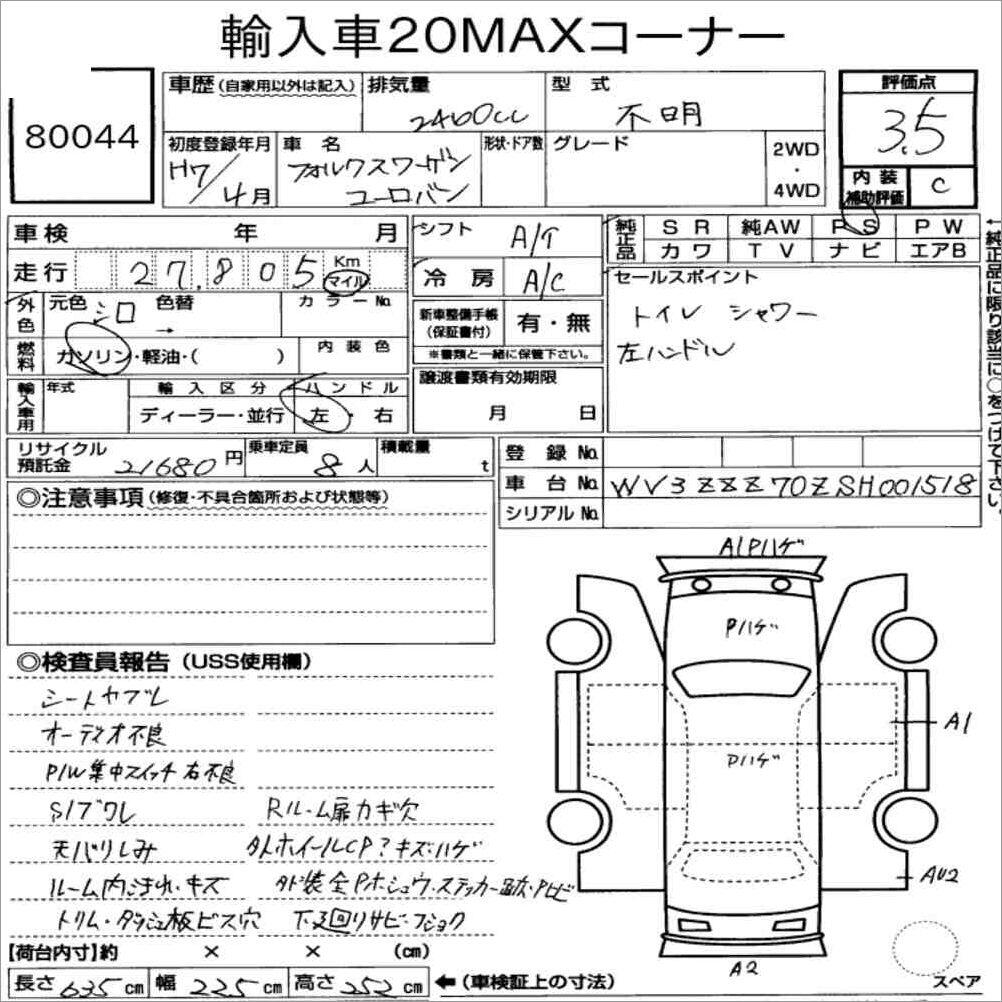 輸入車20MAXコーナー
80044
車歴(自家用以外は記入)
排気量 2400cc
型式 不明
評価点 3.5
初度登録年月 H7/4月
車名 フォルクスワーゲン
ユーロバン
形状・ドア数
グレード
2WD
・
4WD
内装補助評価 C
車検 年 月
シフト A/T
純正品 SR 純AW PS PW
カワ TV ナビ エアB
走行 27,805 Km
マイル
冷房 A/C
セールスポイント
トイレ シャワー
左ハンドル
外色 元色 シロ 色替 → カラーNo.
新車整備手帳(保証書付) 有・無
※書類と一緒に保管下さい。
燃料 ガソリン・軽油・( )
内装色
輸入車用 年式
輸入区分 ディーラー・並行
ハンドル 左・右
譲渡書類有効期限
月 日
←純正品に限り該当に○をつけて下さい。
リサイクル預託金 21680円
乗車定員 8人
積載量 t
登録No.
車台No. WV3ZZZ70ZSH001518
シリアルNo.
◎注意事項(修復・不具合箇所および状態等)
A1Pハゲ
Pハゲ
Pハゲ
A1
AU2
A2
スペア
◎検査員報告(USS使用欄)
シートヤブレ
オーディオ不良
P/W集中スイッチ右不良
S/ブワレ
Rルーム扉カギ穴
天バリしみ
外ホイールCP?キズ・ハゲ
ルーム内こすれ・キズ
外装全Pホシュウ・ステッカー跡・Pヒビ
トリム・ダッシュ板ビス穴
下廻りサビ・フショク
【荷台内寸】約 × × (cm)
長さ 635cm 幅 225cm 高さ 252cm
←(車検証上の寸法)